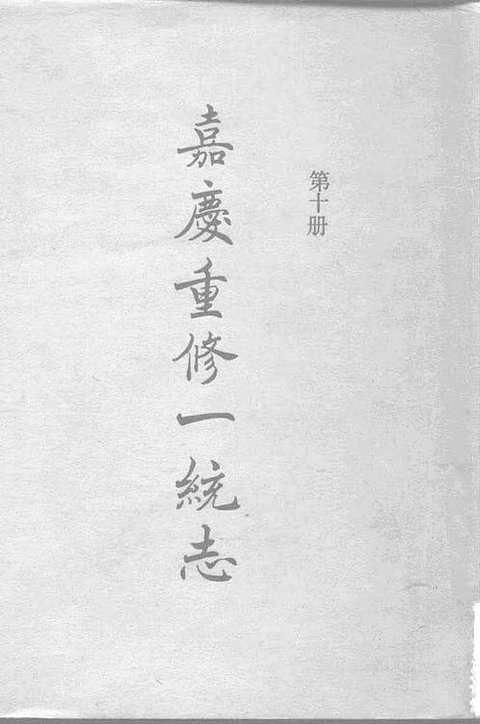 第十册
嘉慶重修一統志